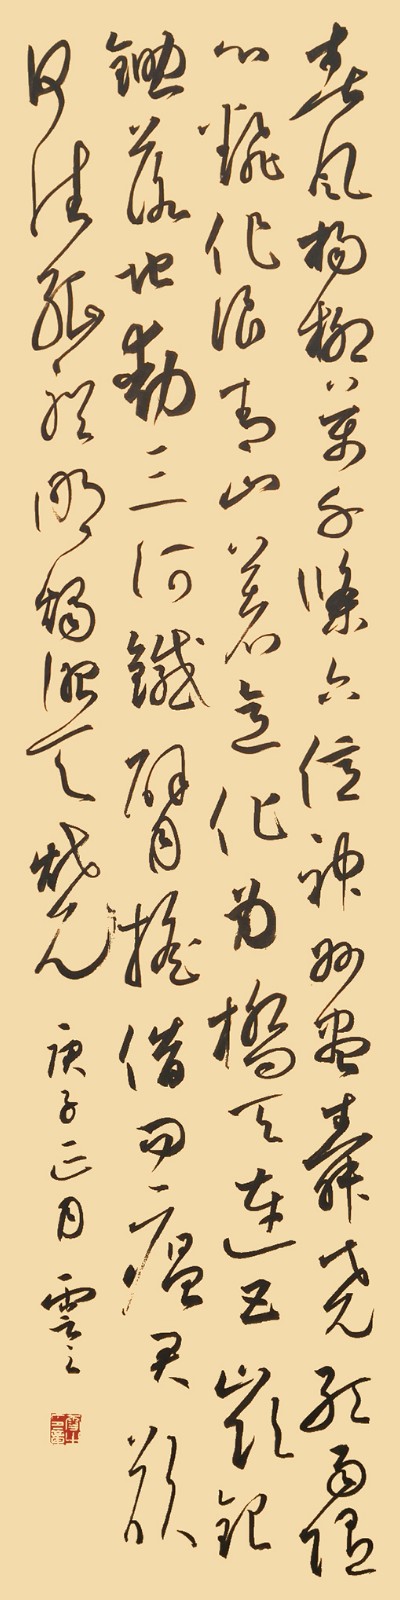 春風楊柳萬千條六億神州盡舜堯紅雨隨
心翻作浪青山着意化為橋天連五嶺銀
鋤落地動三河鐵臂搖借問瘟君欲
何往紙船明燭照天燒
庚子正月